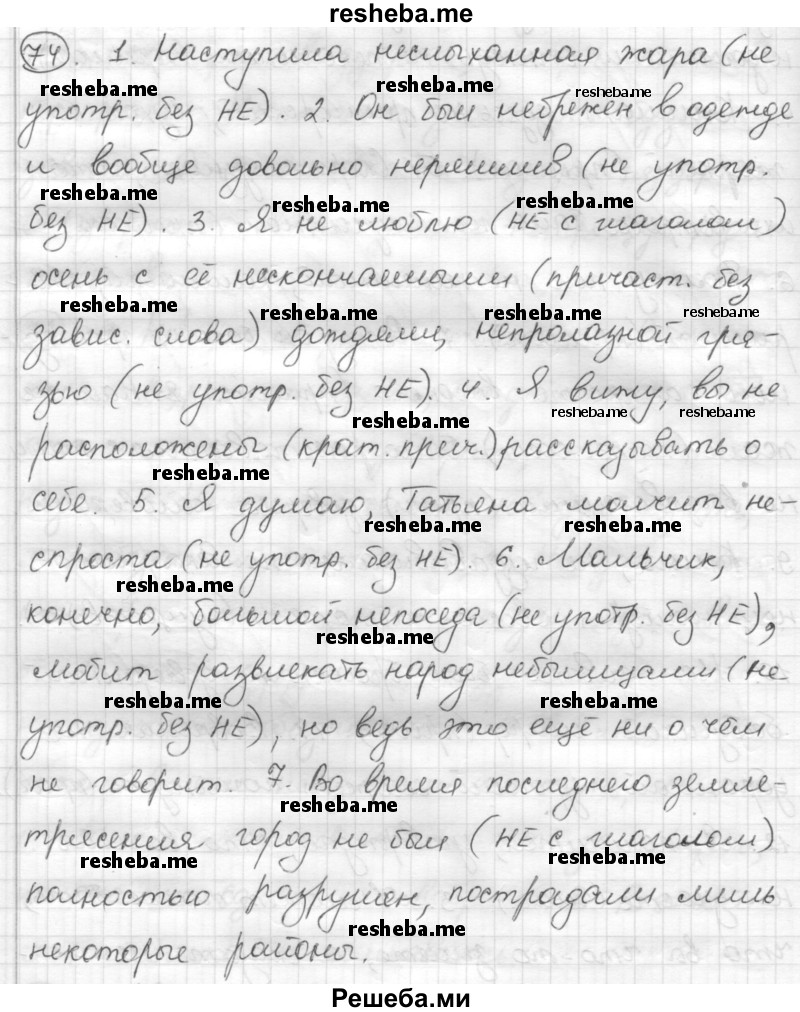 resheba.me
74. 1. Наступила неслыханная жара (не
resheba.me resheba.me resheba.me
употр. без НЕ). 2. Он был небрежен в одежде
и вообще довольно неряшлив (не употр.
resheba.me resheba.me resheba.me
без НЕ). 3. Я не люблю (НЕ с глаголом)
осень с её нескончаемыми (причаст. без
resheba.me resheba.me resheba.me resheba.me
завис. слова) дождями, непролазной гря-
зью (не употр. без НЕ). 4. Я вижу, вы не
resheba.me resheba.me resheba.me
расположены (крат. прич.) рассказывать о
resheba.me
себе. 5. Я думаю, Татьяна молчит не-
resheba.me resheba.me
спроста (не употр. без НЕ). 6. Мальчик,
resheba.me
конечно, большой непоседа (не употр. без НЕ),
resheba.me
любит развлекать народ небылицами (не
resheba.me resheba.me
употр. без НЕ), но ведь это ещё ни о чём
не говорит. 7. Во время последнего земле-
resheba.me
трясения город не был (НЕ с глаголом)
resheba.me resheba.me
полностью разрушен, пострадали лишь
resheba.me
некоторые районы.
Решеба.ми